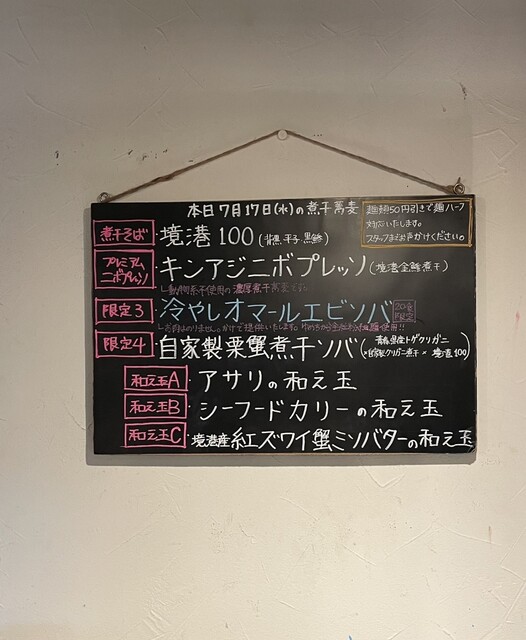 本日7月17日(水)の煮干蕎麦
麺類50円引きで麺ハーフ
対応いたします。
スタッフまでお声かけください。
煮干そば 境港100(背黒・平子・黒鯵)
プレミアム
ニボプレッソ キンアジニボプレッソ(境港金鯵煮干)
└動物系不使用の濃厚煮干蕎麦
限定3 冷やしオマールエビソバ 20食
限定
└お肉はのりません。かけで提供いたします。
限定4 自家製栗蟹煮干ソバ(青森県産トゲクリガニ
×自家製クリガニ煮干×境港100)
和え玉A アサリの和え玉
和え玉B シーフードカリーの和え玉
和え玉C 境港産紅ズワイ蟹ミソバターの和え玉